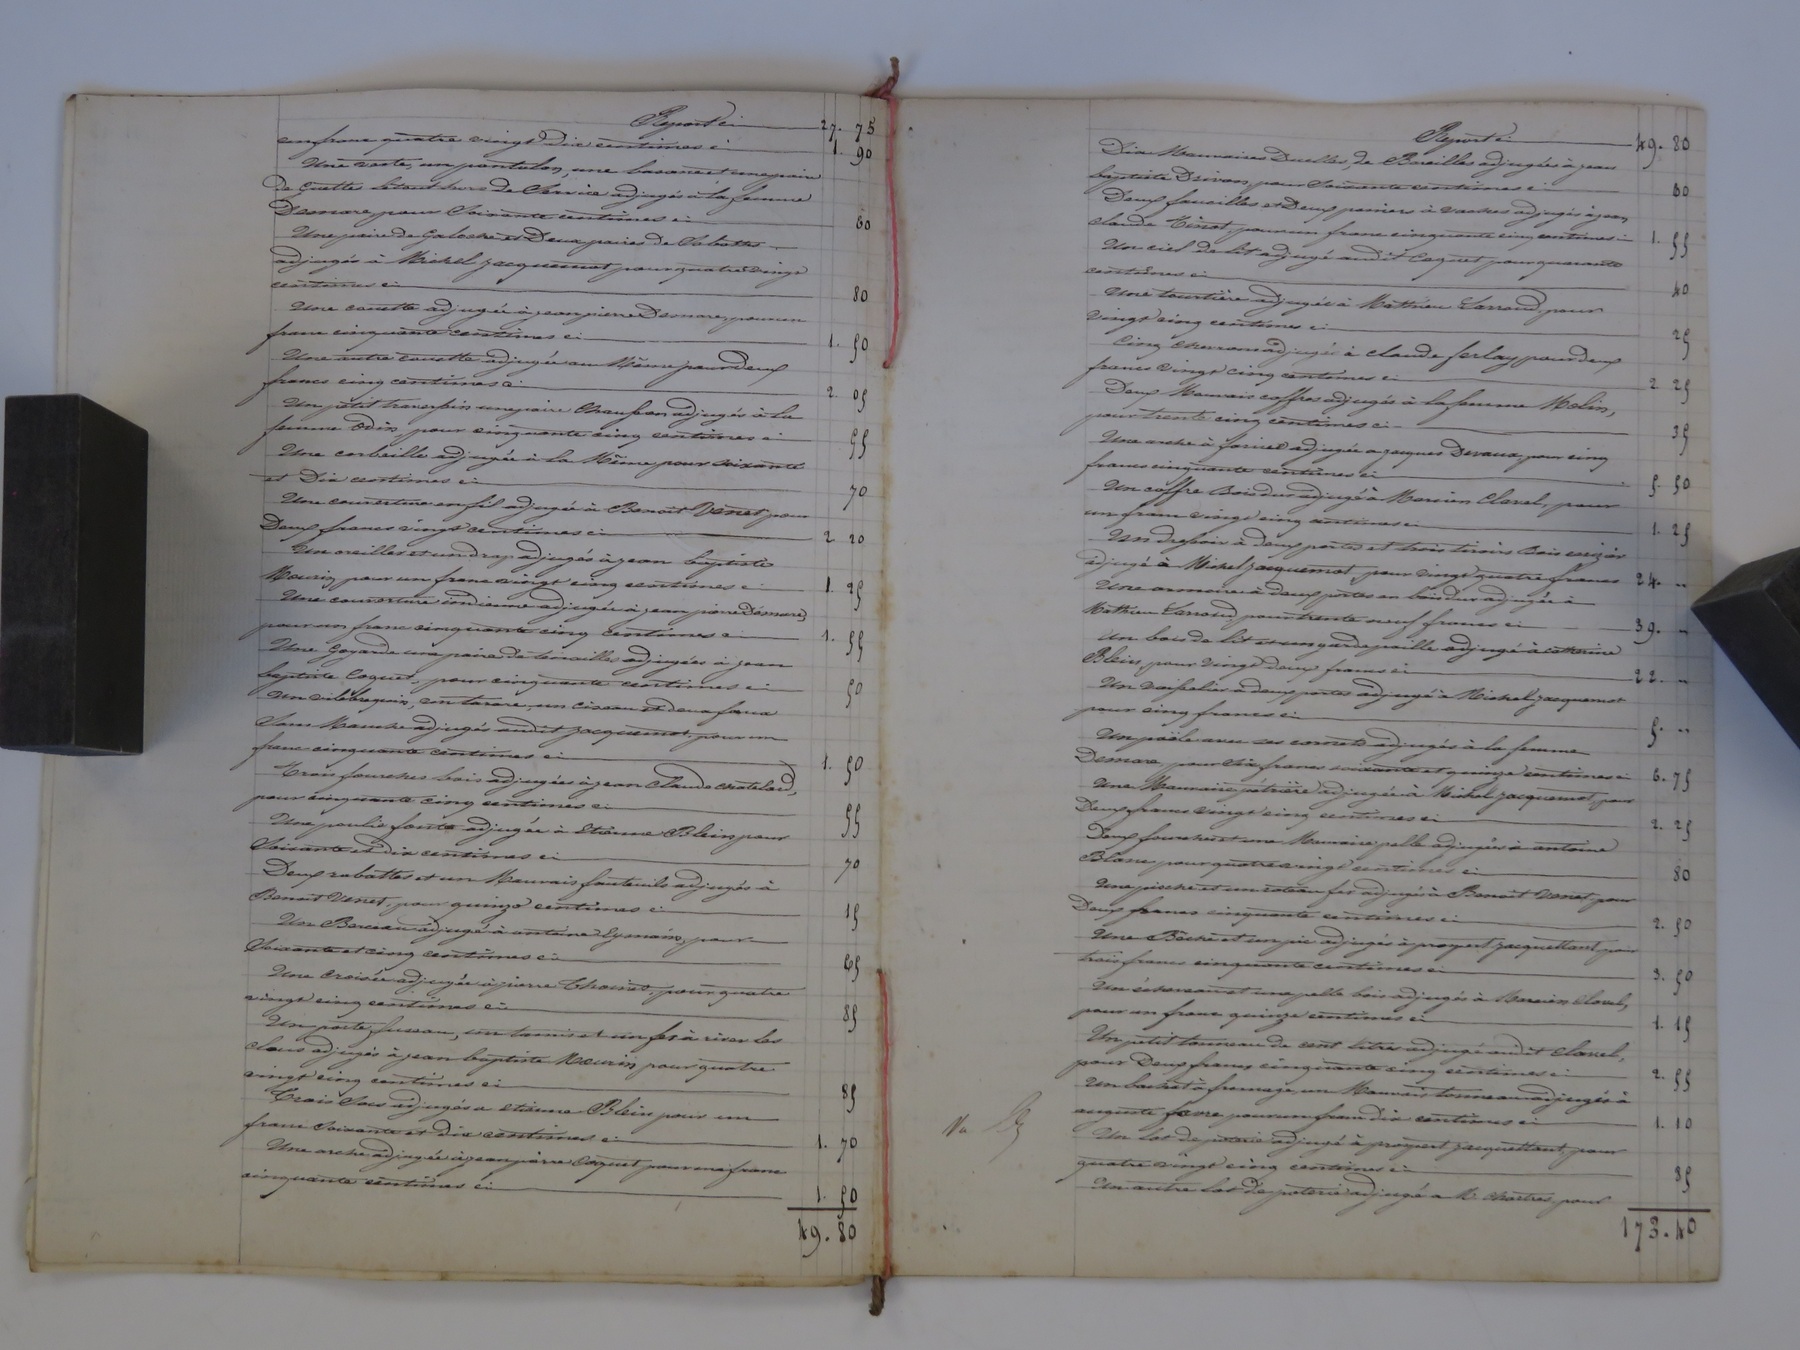 Report ci 27. 75
un franc quatre vingt Dix centimes ci 1. 90
Une veste, un pantalon, une basane et une paire
de Guêttes le tout hors de Service adjugés à la femme
Demare pour Soixante centimes ci 60
Une paire de Galoche et Deux paires de Sabottes
adjugés à Michel Jacquemot pour quatre vingt
centimes ci 80
Une couette adjugée à jean pierre Demare, pour un
franc cinquante centimes ci 1. 50
Une autre couette adjugée au Même pour deux
francs cinq centimes ci 2. 05
Un petit traversin une paire adjugés à la
femme Odin, pour cinquante cinq centimes ci 55
Une corbeille adjugée à la Même pour soixante
et Dix centimes ci 70
Une couverture en fil adjugée à Benoit Venet pour
Deux francs vingt centimes ci 2. 20
Un oreiller et un drap adjugés à jean baptiste
Mourin pour un franc vingt cinq centimes ci 1. 25
Une couverture indienne adjugée à jean pierre Demare,
pour un franc cinquante cinq centimes ci 1. 55
Une Goyarde une paire de tenailles adjugées à jean
baptiste Coquet, pour cinquante centimes ci 50
Un vilebrequin, un tarare, un ciseau et deux faux
Sans Manche adjugés au dit Jacquemot, pour un
franc cinquante centimes ci 1. 50
Trois fourches bois adjugées à jean Claude Chatelard,
pour cinquante cinq centimes ci 55
Une poulie fonte adjugée à Etienne Blein pour
Soixante et dix centimes ci 70
Deux rabattes et un Mauvais fauteuils adjugés à
Benoit Venet, pour quinze centimes ci 15
Un Berceau adjugé à antoine Eymain, pour
Soixante et cinq centimes ci 65
Une Croisée adjugée à pierre Thoinet, pour quatre
vingt cinq centimes ci 85
Un porte fuseau, un tamis et un fer à river les
clous adjugés à jean baptiste Mourin pour quatre
vingt cinq centimes ci 85
Trois Sacs adjugés a Etienne Blein pour un
franc Soixante et Dix centimes ci 1. 70
Une arche adjugée à jean pierre Coquet pour un franc
cinquante centimes ci 1. 50
49. 80
Report ci 49. 80
Dix Mauvaises Duelles, de Bareilles adjugées à jean
baptiste Drivon pour Soixante centimes ci 60
Deux faucilles et Deux paniers à vaches adjugés à jean
claude Tinot, pour un franc cinquante cinq centimes ci 1. 55
Un ciel de lit adjugé audit Coquet pour quarante
centimes ci 40
Une tourtière adjugée à Mathieu Larraud, pour
vingt cinq centimes ci 25
Cinq adjugés à claude ferlay pour deux
francs vingt cinq centimes ci 2. 25
Deux Mauvais coffres adjugés à la femme Molin,
pour trente cinq centimes ci 35
Une arche à farine adjugée a Jacques Devaux, pour cinq
francs cinquante centimes ci 5. 50
Un coffre Bois dur adjugé à Marcein Clavel, pour
un franc vingt cinq centimes ci 1. 25
Un dressoir à deux portes et trois tiroirs Bois cerizier
adjugé à Michel Jacquemot, pour vingt quatre francs 24. "
Une armoire à deux portes en bois dur adjugée à
Mathieu Larraud pour trente neuf francs ci 39. "
Un bois de lit et un garde paille adjugé à catherine
Blein, pour vingt deux francs ci 22. "
Un vaisselier à deux portes adjugé à Michel Jacquemot
pour cinq francs ci 5. "
Un poële avec ses cornets adjugés à la femme
Demare, pour Six francs soixante et quinze centimes ci 6. 75
Une Mauvaise pétrière adjugée à Michel Jacquemot, pour
Deux francs vingt cinq centimes ci 2. 25
Deux fourches et une Mauvaise pelle adjugés à antoine
Blanc, pour quatre vingt centimes ci 80
Une pioche et un coteau fer adjugés à Benoit Venet pour
Deux francs cinquante centimes ci 2. 50
Une Bêche et un pic adjugés à prospert Jacquettant, pour
trois francs cinquante centimes ci 3. 50
Un et une pelle bois adjugés à Marcein Clavel,
pour un franc quinze centimes ci 1. 15
Un petit tonneau de cent litres adjugé au dit Clavel,
pour Deux francs cinquante cinq centimes ci 2. 55
Un bachat à fromage, un Mauvais tonneau adjugés à
auguste favre pour un franc dix centimes ci 1. 10
Un Lot de poterie adjugé à prospert Jacquettant, pour
quatre vingt cinq centimes ci 85
Un autre Lot de poterie adjugé a Mr Chartre, pour
173. 40